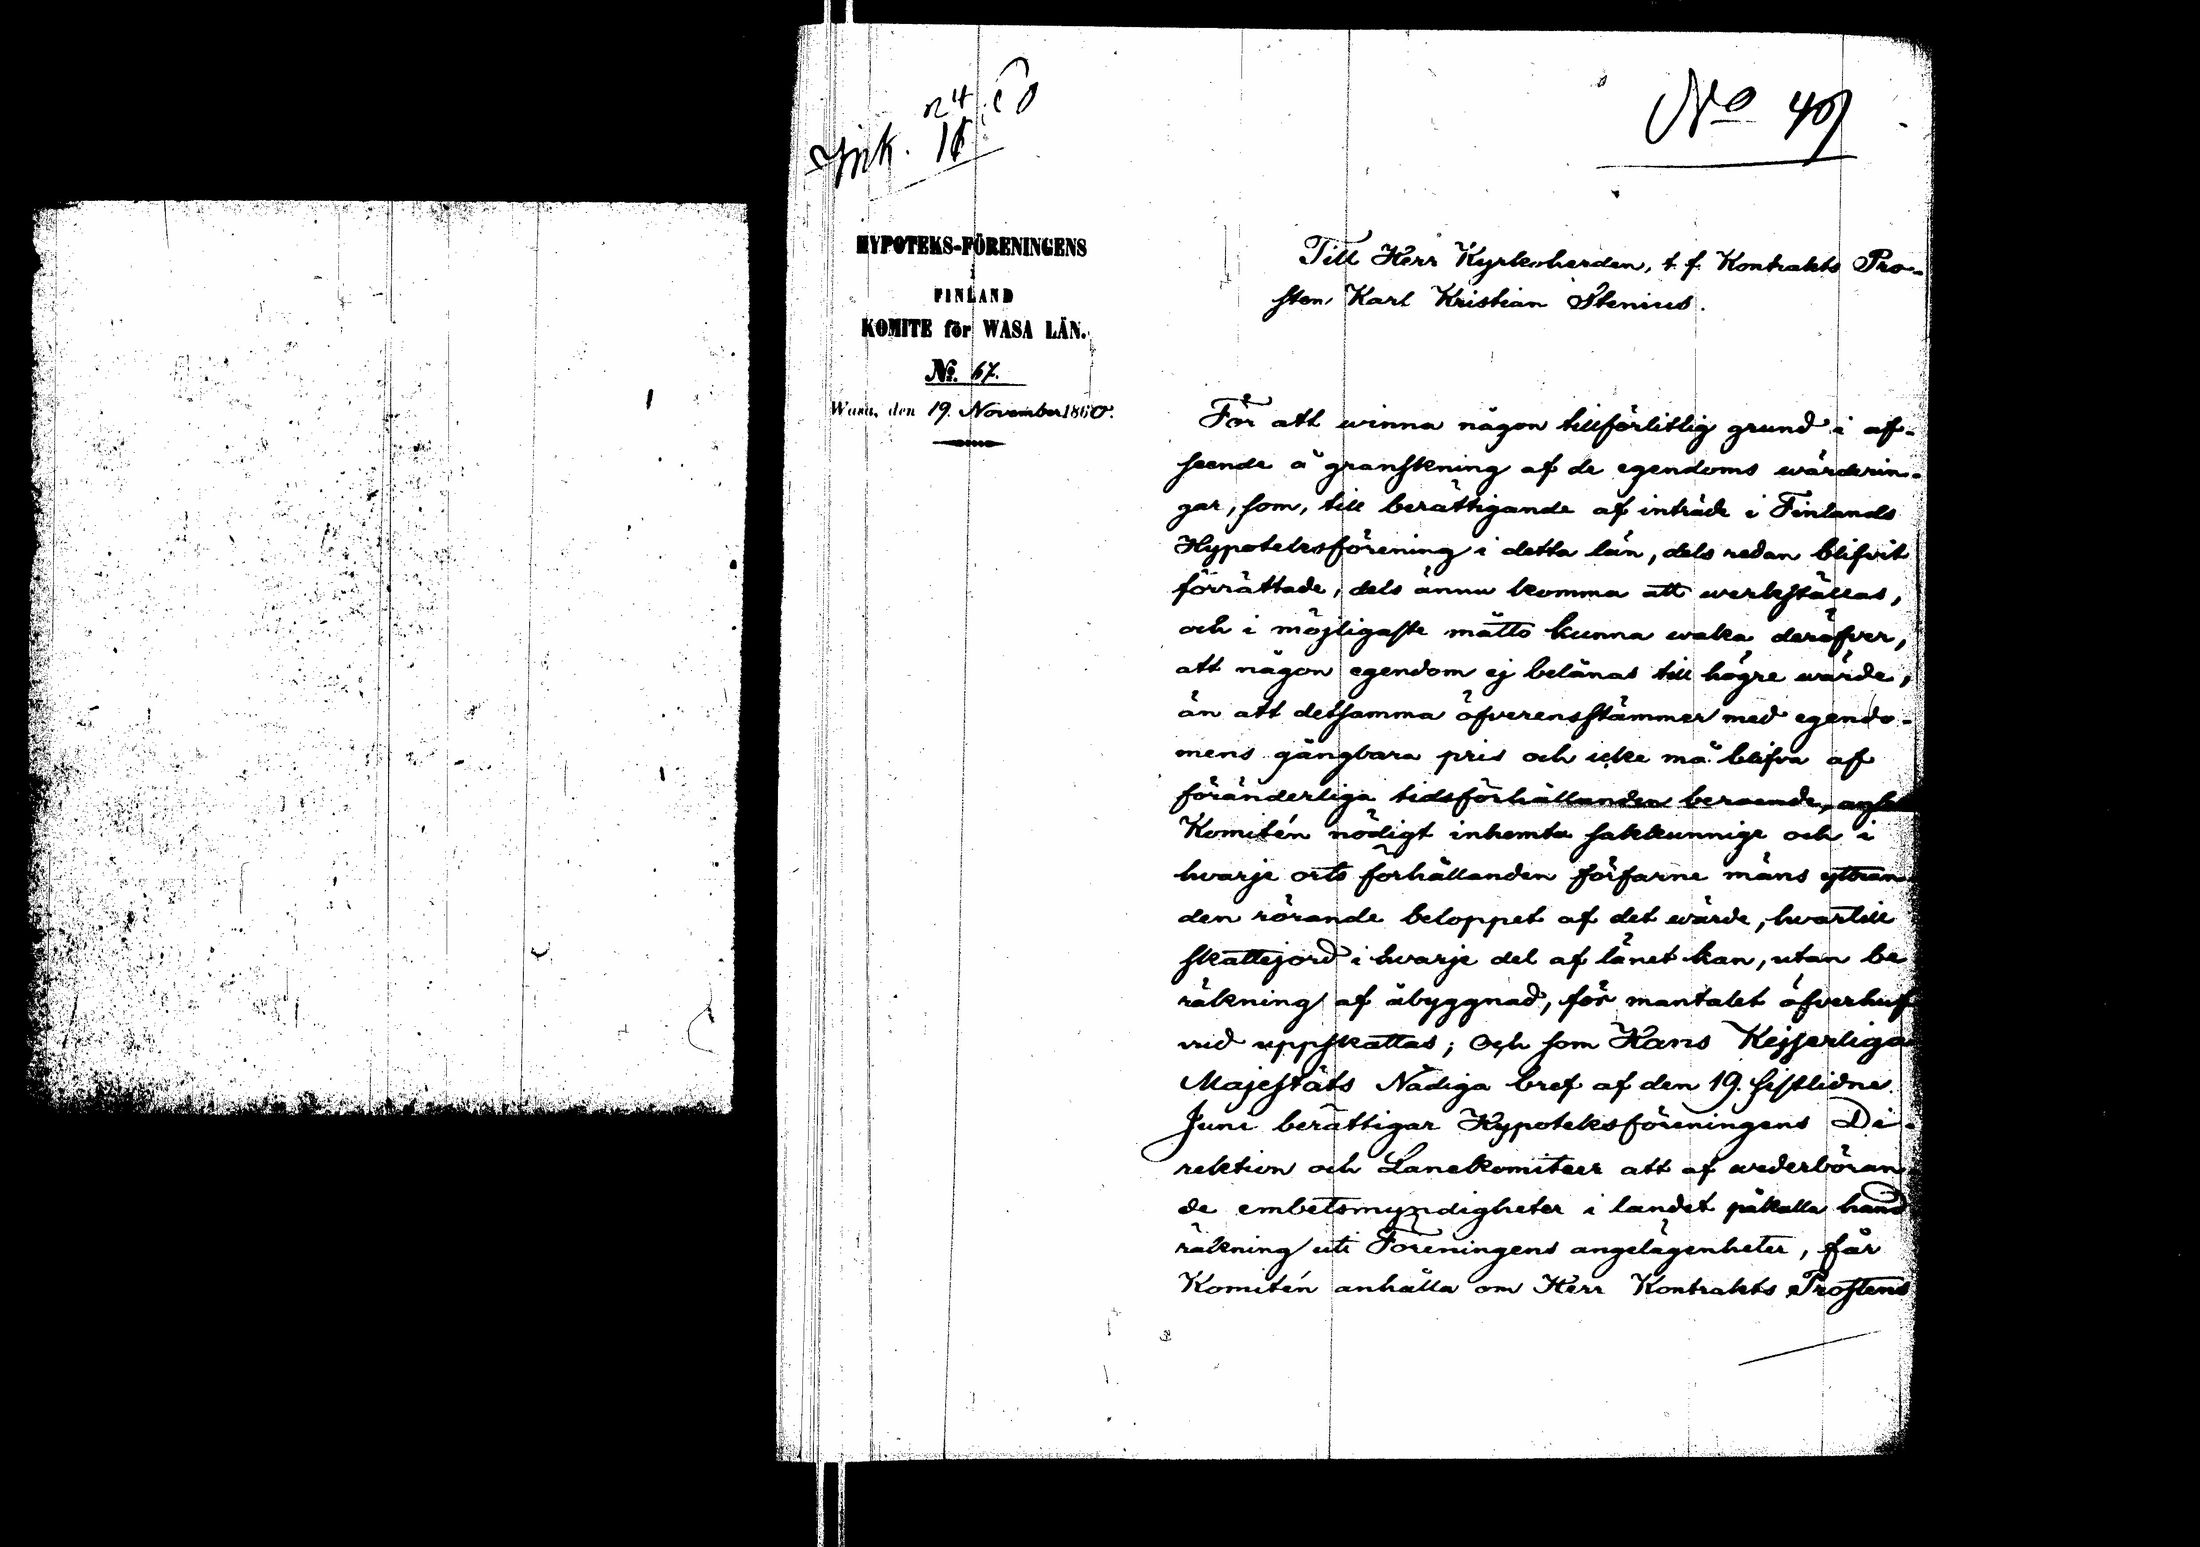 Ink. 24/11 60
No 40
HYPOTEKS-FÖRENINGENS
i
FINLAND
KOMITE för WASA LÄN.
No. 67.
Wasa, den 19. November 1860.
Till Herr Kyrkoherden, t. f. Kontrakts Pro-
sten Karl Kristian Stenius.
För att winna någon tillförlitlig grund i af-
seende å granskning af de egendoms wärderin-
gar, som, till berättigande af inträde i Finlands
Hypoteksförening i detta län, dels redan blifvit
förrättade, dels ännu komma att werkställas,
och i möjligaste måtto kunna waka deröfver,
att någon egendom ej belånas till högre wärde,
än att detsamma öfverensstämmer med egendo-
mens gångbara pris och icke må blifva af
föränderliga tidsförhållanden beroende,
Komitén nödigt inhemta sakkunnige och i
hvarje orts förhållanden förfarne mäns yttran-
den rörande beloppet af det wärde, hvartill
skattejord i hvarje del af länet kan, utan be
räkning af åbyggnad, för mantalet öfverhuf
vud uppskattas; Och som Hans Kejserliga
Majestäts Nådiga bref af den 19. sistlidne
Juni berättigar Hypoteksföreningens Di-
rektion och Lånekomiteer att af wederböran-
de embetsmyndigheter i landet påkalla hand
räkning uti Föreningens angelägenheter, får
Komitén anhålla om Herr Kontrakts Prostens